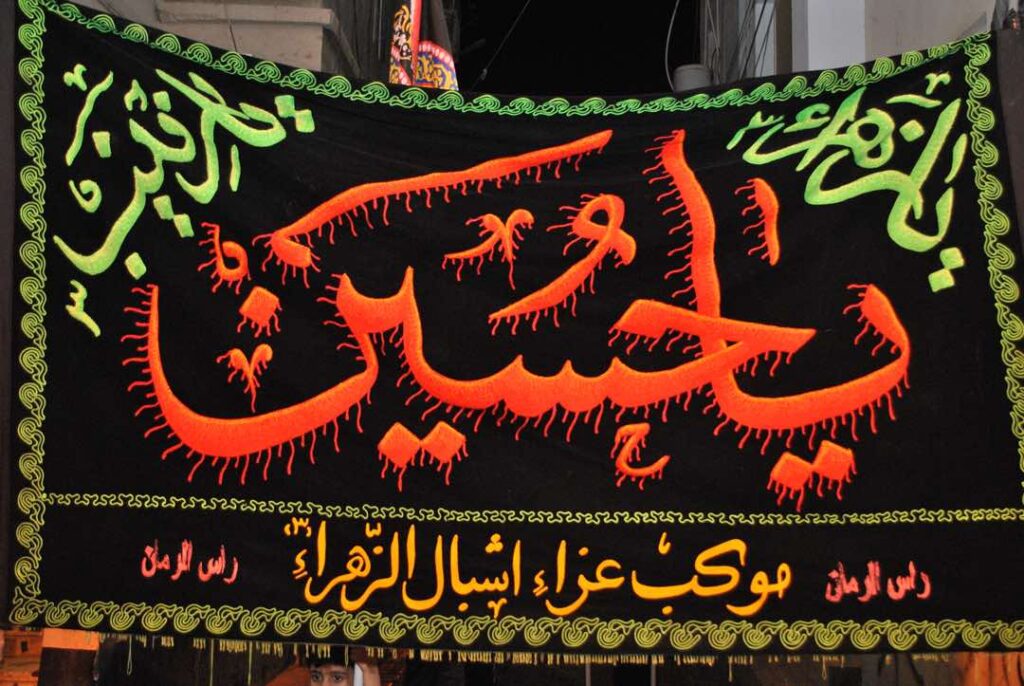 يا زهراء
يا حسين
راس الرمان موكب عزاء اشبال الزّهراء (ع) راس الرمان